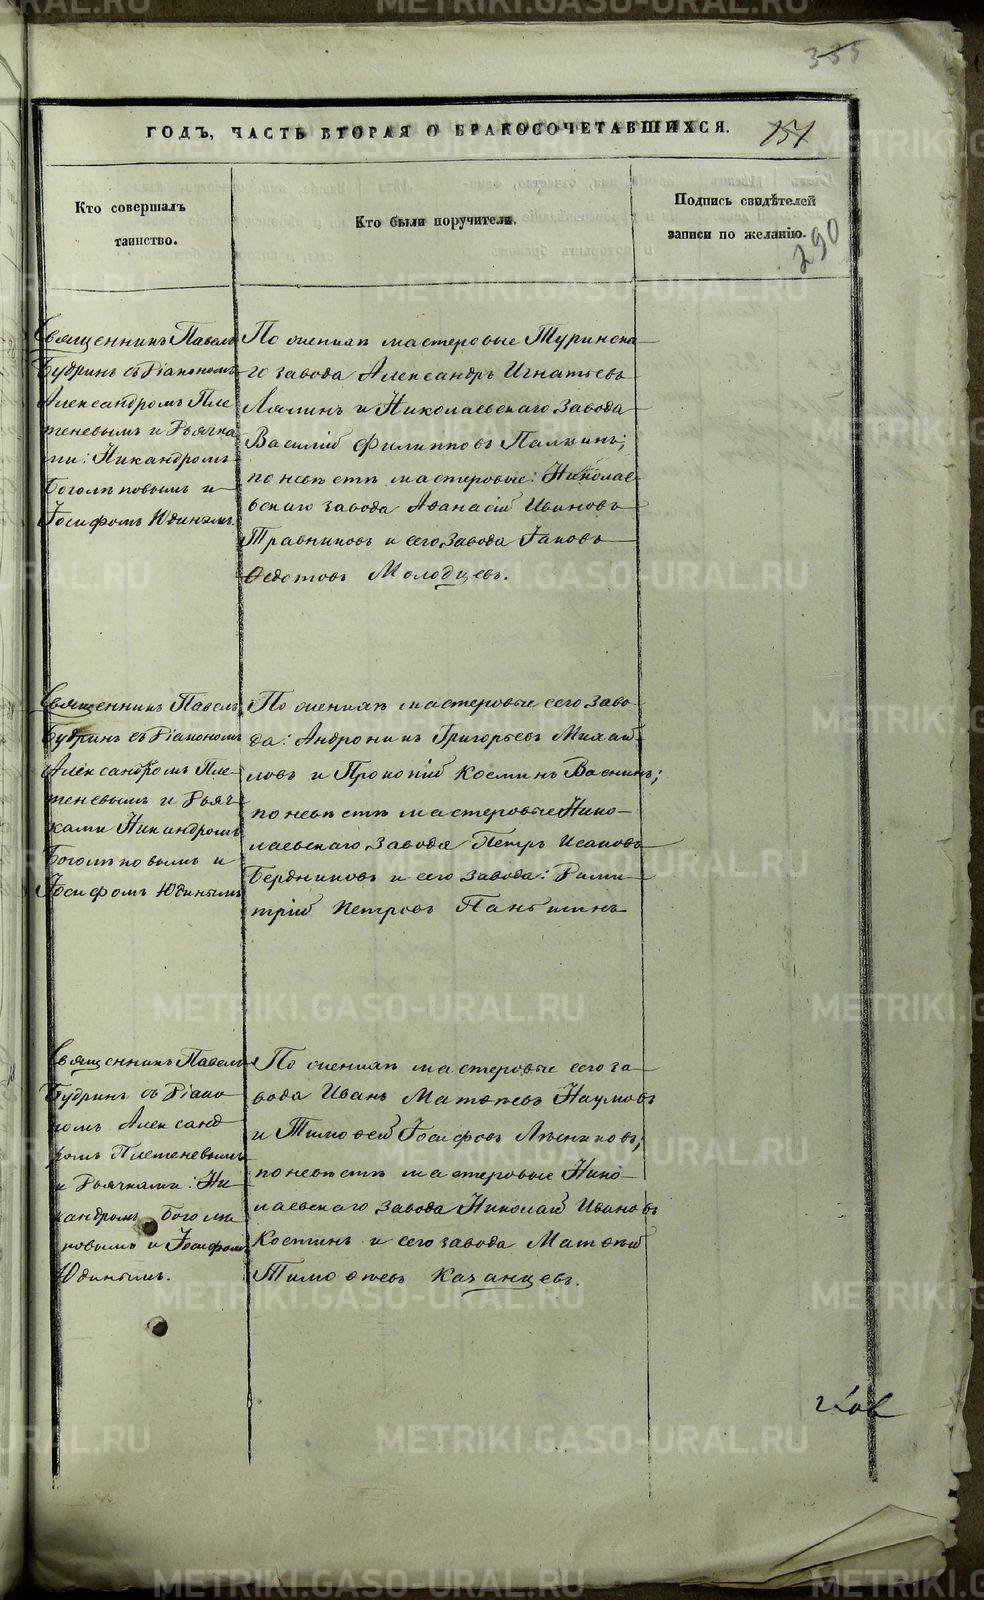 335
ГОДЪ, ЧАСТЬ ВТОРАЯ О БРАКОСОЧЕТАВШИХСЯ.
151
Кто совершалъ
таинство.
Кто были поручители.
Подпись свидѣтелей
записи по желанію.
290
Священникъ Павелъ
Будринъ съ Діакономъ
Александромъ Пле
теневымъ и Дьячка
ми: Никандромъ
Боголѣповымъ и
Іосифомъ Юдинымъ.
По женихѣ мастеровые Туринска
го завода Александръ Игнатьевъ
Лялинъ и Николаевскаго завода
Василій Филипповъ Палкинъ;
по невѣстѣ мастеровые: Николае
вскаго завода Аѳанасій Ивановъ
Травниковъ и сего завода Іаковъ
Ѳедотовъ Молодцевъ.
Священникъ Павелъ
Будринъ съ Діакономъ
Александромъ Пле-
теневымъ и Дьяч
ками Никандромъ
Боголѣповымъ и
Іосифомъ Юдинымъ
По женихѣ мастеровые сего заво
да: Андроникъ Григорьевъ Михай
ловъ и Прокопій Косминъ Васнинъ;
по невѣстѣ мастеровые Нико-
лаевскаго завода Петръ Исаковъ
Бердниковъ и сего завода: Дими
трій Петровъ Паньшинъ
Священникъ Павелъ
Будринъ съ Діако-
номъ Александ
ромъ Плетеневымъ
и Дьячками: Ни
кандромъ Боголѣ
повымъ и Іосифомъ
Юдинымъ.
По женихѣ мастеровые сего за-
вода Иванъ Матѳѣевъ Наумовъ
и Тимоѳей Іосифовъ Лѣсниковъ;
по невѣстѣ мастеровые Нико-
лаевскаго завода Николай Ивановъ
Костинъ и сего завода Матѳѣй
Тимоѳѣевъ Казанцевъ.
METRIKI.GASO-URAL.RU